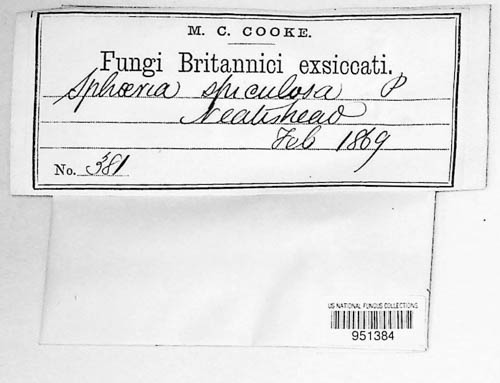 M. C. COOKE.
Fungi Britannici exsiccati.
Sphæria spiculosa P
Neatishead
Feb 1869
No. 381
US NATIONAL FUNGUS COLLECTIONS
951384